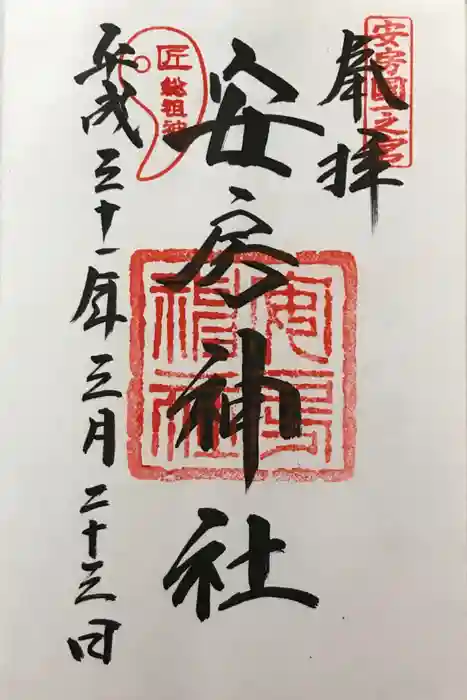 奉拝
安房國一之宮
安房神社
安房神社
匠総祖神
平成三十一年三月二十三日